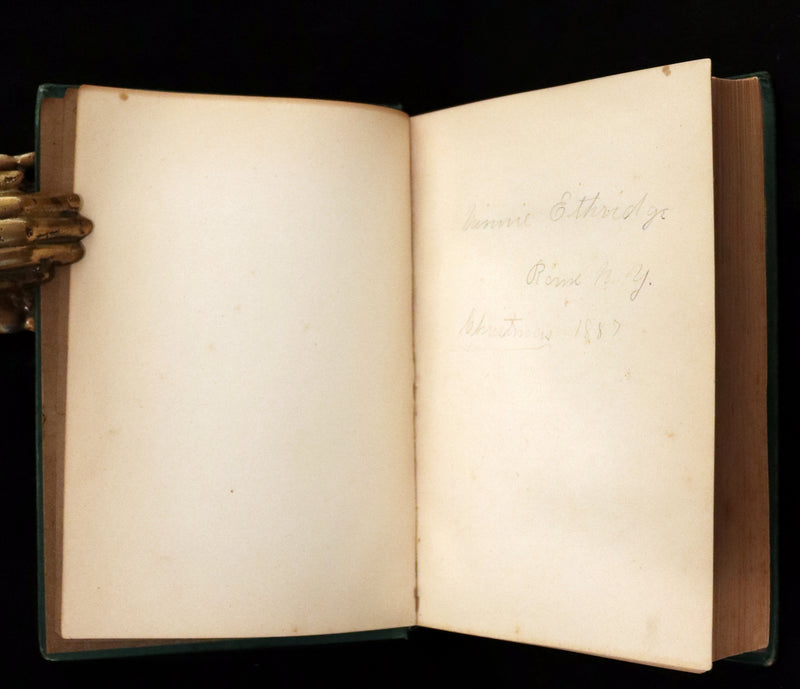 Ethridge
Rome N. Y.
Christmas 1887